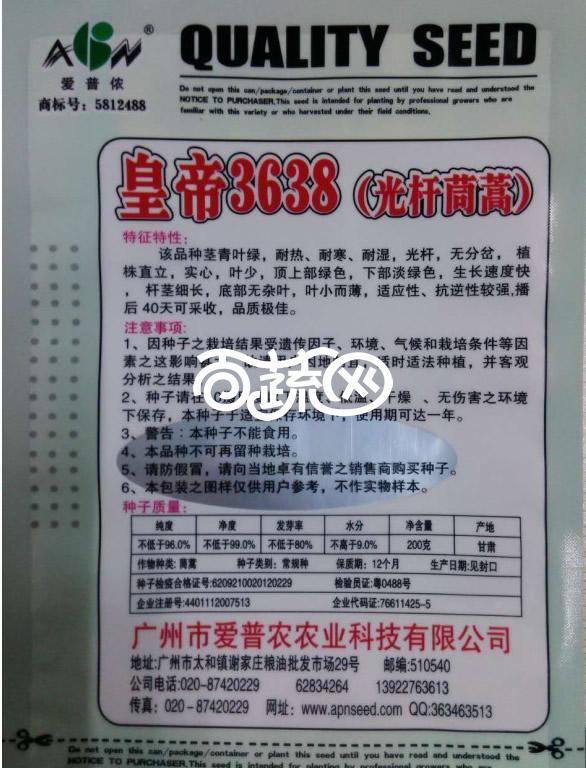 ABN®
QUALITY SEED
爱普侬
商标号：5812488
Do not open this can/package/container or plant this seed until you have read and understood the
NOTICE TO PURCHASER.This seed is intended for planting by professional growers who are
familiar with this variety or who harvested under their field conditions.
皇帝3638（光杆茼蒿）
特征特性：
该品种茎青叶绿，耐热、耐寒、耐湿，光杆，无分岔，植
株直立，实心，叶少，顶上部绿色，下部淡绿色，生长速度快
，杆茎细长，底部无杂叶，叶小而薄，适应性、抗逆性较强,播
后40天可采收，品质极佳。
注意事项：
1、因种子之栽培结果受遗传因子、环境、气候和栽培条件等因
素之这影响 适时适法种植，并客观
分析之结果
百蔬网
2、种子请在 低温、干燥、无伤害之环境
下保存，本种子 保存环境下，使用期可达一年。
3、警告：本种子不能食用。
4、本品种不可再留种栽培。
5、请防假冒，请向当地卓有信誉之销售商购买种子。
6、本包装之图样仅供用户参考，不作实物样本。
种子质量：
纯度 净度 发芽率 水分 净含量 产地
不低于96.0% 不低于99.0% 不低于80% 不高于9.0% 200克 甘肃
作物种类：茼蒿 种子类别：常规种 保质期：12个月 生产日期:见封口
种子检疫合格证号:6209210020120229 检验员证:粤0488号
企业注册号:4401112007513 企业代码证:76611425-5
广州市爱普农农业科技有限公司
地址:广州市太和镇谢家庄粮油批发市场29号 邮编:510540
公司电话:020-87420229 62834264 13922763613
传真：020-87420229 网址：www.apnseed.com QQ:363463513
Do not open this can/package/container or plant this seed until you have read and understood the
NOTICE TO PURCHASER.This seed is intended for planting by professional growers who are